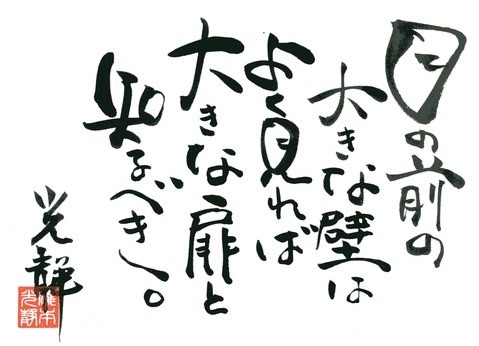 目の前の
大きな壁は
よく見れば
大きな扉と
知るべき。
光静